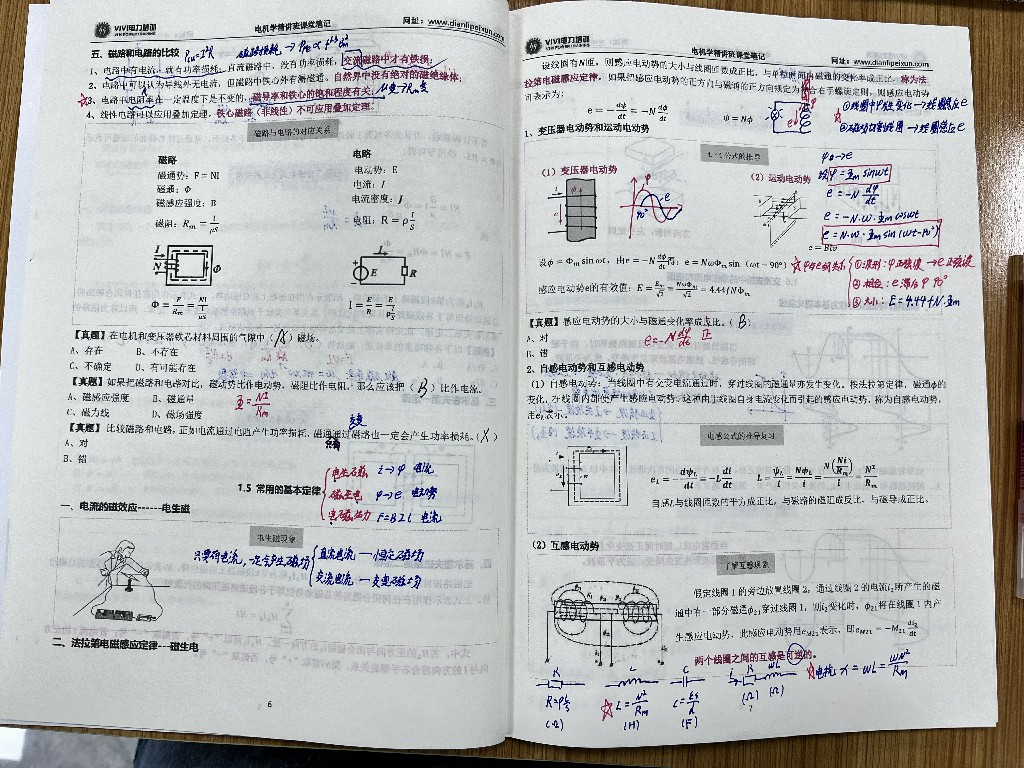 VIVI电力培训 电机学精讲班课堂笔记 网址：www.dianlipeixun.com
五、磁路和电路的比较
1、电路中有电流，就有功率损耗；直流磁路中，没有功率损耗，交流磁路中才有铁损；
2、电路中可以认为导线外无电流，但磁路中铁心外有漏磁通，自然界中没有绝对的磁绝缘体；
3、电路中电阻率在一定温度下是不变的，磁导率和铁心的饱和程度有关；
4、线性电路可以应用叠加定理，铁心磁路（非线性）不可应用叠加定理；
磁路与电路的对应关系
磁路 电路
磁通势：F=NI 电动势：E
磁通：Φ 电流：I
磁感应强度：B 电流密度：J
磁阻：Rm = l/μS 电阻：R = ρ l/S
I N Φ
I E R
Φ = F/Rm = NI/(l/μS) I = E/R = E/(ρ l/S)
【真题】在电机和变压器铁芯材料周围的气隙中（A）磁场。
A、存在 B、不存在
C、不确定 D、有可能存在
【真题】如果把磁路和电路对比，磁动势比作电动势，磁阻比作电阻，那么应该把（B）比作电流。
A、磁感应强度 B、磁通量
C、磁力线 D、磁场强度
Φ = NI/Rm
【真题】比较磁路和电路，正如电流通过电阻产生功率损耗，磁通通过磁路也一定会产生功率损耗。（X）
交变
A、对
B、错
1.5 常用的基本定律
电生磁 i→φ 电流
磁生电 φ→e 电动势
电磁力 F=BIl 电流
一、电流的磁效应------电生磁
电生磁现象
只要有电流，一定会产生磁场
直流电流 — 恒定磁场
交流电流 — 交变磁场
二、法拉第电磁感应定律---磁生电
6
VIVI电力培训 电机学精讲班课堂笔记 网址：www.dianlipeixun.com
设线圈有N匝，则感应电动势的大小与线圈匝数成正比，与单位时间内磁通的变化率成正比，称为法
拉第电磁感应定律。如果把感应电动势的正方向与磁通的正方向规定为符合右手螺旋定则，则感应电动势
可表示为：
e = −dψ/dt = −N dφ/dt ψ = Nφ
①线圈中φ发生变化→线圈感应e
②磁场切割线圈→线圈感应e
1、变压器电动势和运动电动势
4.44公式的推导
（1）变压器电动势 （2）运动电动势
φ e 90°
e = Blv
φ→e
设φ=Φm sinωt
e = -N dφ/dt
e = -N·ω·Φm cosωt
e = N·ω·Φm sin(ωt-90°)
设φ = Φm sin ωt，由e = −N dφ/dt得：e = NωΦm sin（ωt − 90°）
感应电动势e的有效值：E = Em/√2 = NωΦm/√2 = 4.44fNΦm
☆φ与e的关系
①波形：φ正弦波→e正弦波
②相位：e滞后φ 90°
③大小：E=4.44fN·Φm
【真题】感应电动势的大小与磁通变化率成反比。（B）
A、对
B、错
e = -N dφ/dt 正
2、自感电动势和互感电动势
（1）自感电动势：当线圈中有交变电流通过时，穿过线圈的磁通量亦发生变化，根法拉第定律，磁通φ的
变化，在线圈内部便产生感应电动势，这种由于线圈自身电流变化而引起的感应电动势，称为自感电动势，
用eL表示。
电感公式的推导复习
eL = −dψL/dt = −L di/dt L = ψL/i = NφL/i = N(Ni/Rm)/i = N²/Rm
自感L与线圈匝数的平方成正比，与磁路的磁阻成反比、与磁导成正比。
（2）互感电动势
了解互感现象
假定线圈1的旁边放置线圈2，通过线圈2的电流i₂所产生的磁
通中有一部分磁通φ₂₁穿过线圈1，则i₂变化时，φ₂₁将在线圈1内产
生感应电动势，此感应电动势用eM21表示，即eM21 = −M21 di₂/dt
两个线圈之间的互感是可逆的。
R L C R ωL
R=ρ l/S ☆L= N²/Rm C= εs/d (Ω) (Ω)
(Ω) (H) (F)
☆电抗 x = ωL = ωN²/Rm